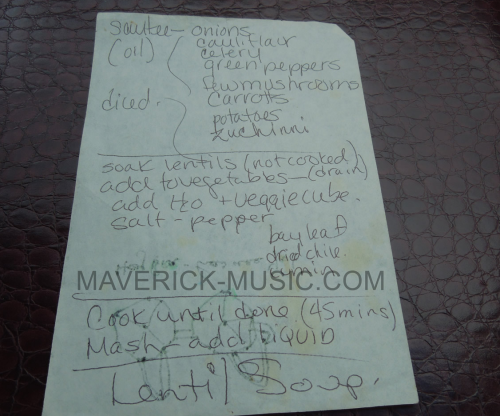 sautee - onions
(oil) cauliflair
celery
green peppers
few mushrooms
diced. carrots
potatoes
zuchinni
soak lentils (not cooked)
add to vegetables - (drain)
add H2O + veggie cube.
salt - pepper
bay leaf
dried chile
cumin
MAVERICK-MUSIC.COM
Cook until done (45 mins)
Mash - add LiQUiD
Lentil Soup.